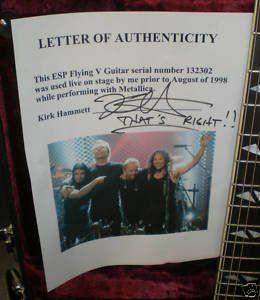 LETTER OF AUTHENTICITY
This ESP Flying V Guitar serial number 132302
was used live on stage by me prior to August of 1998
while performing with Metallica
Kirk Hammett
THAT'S RIGHT!!